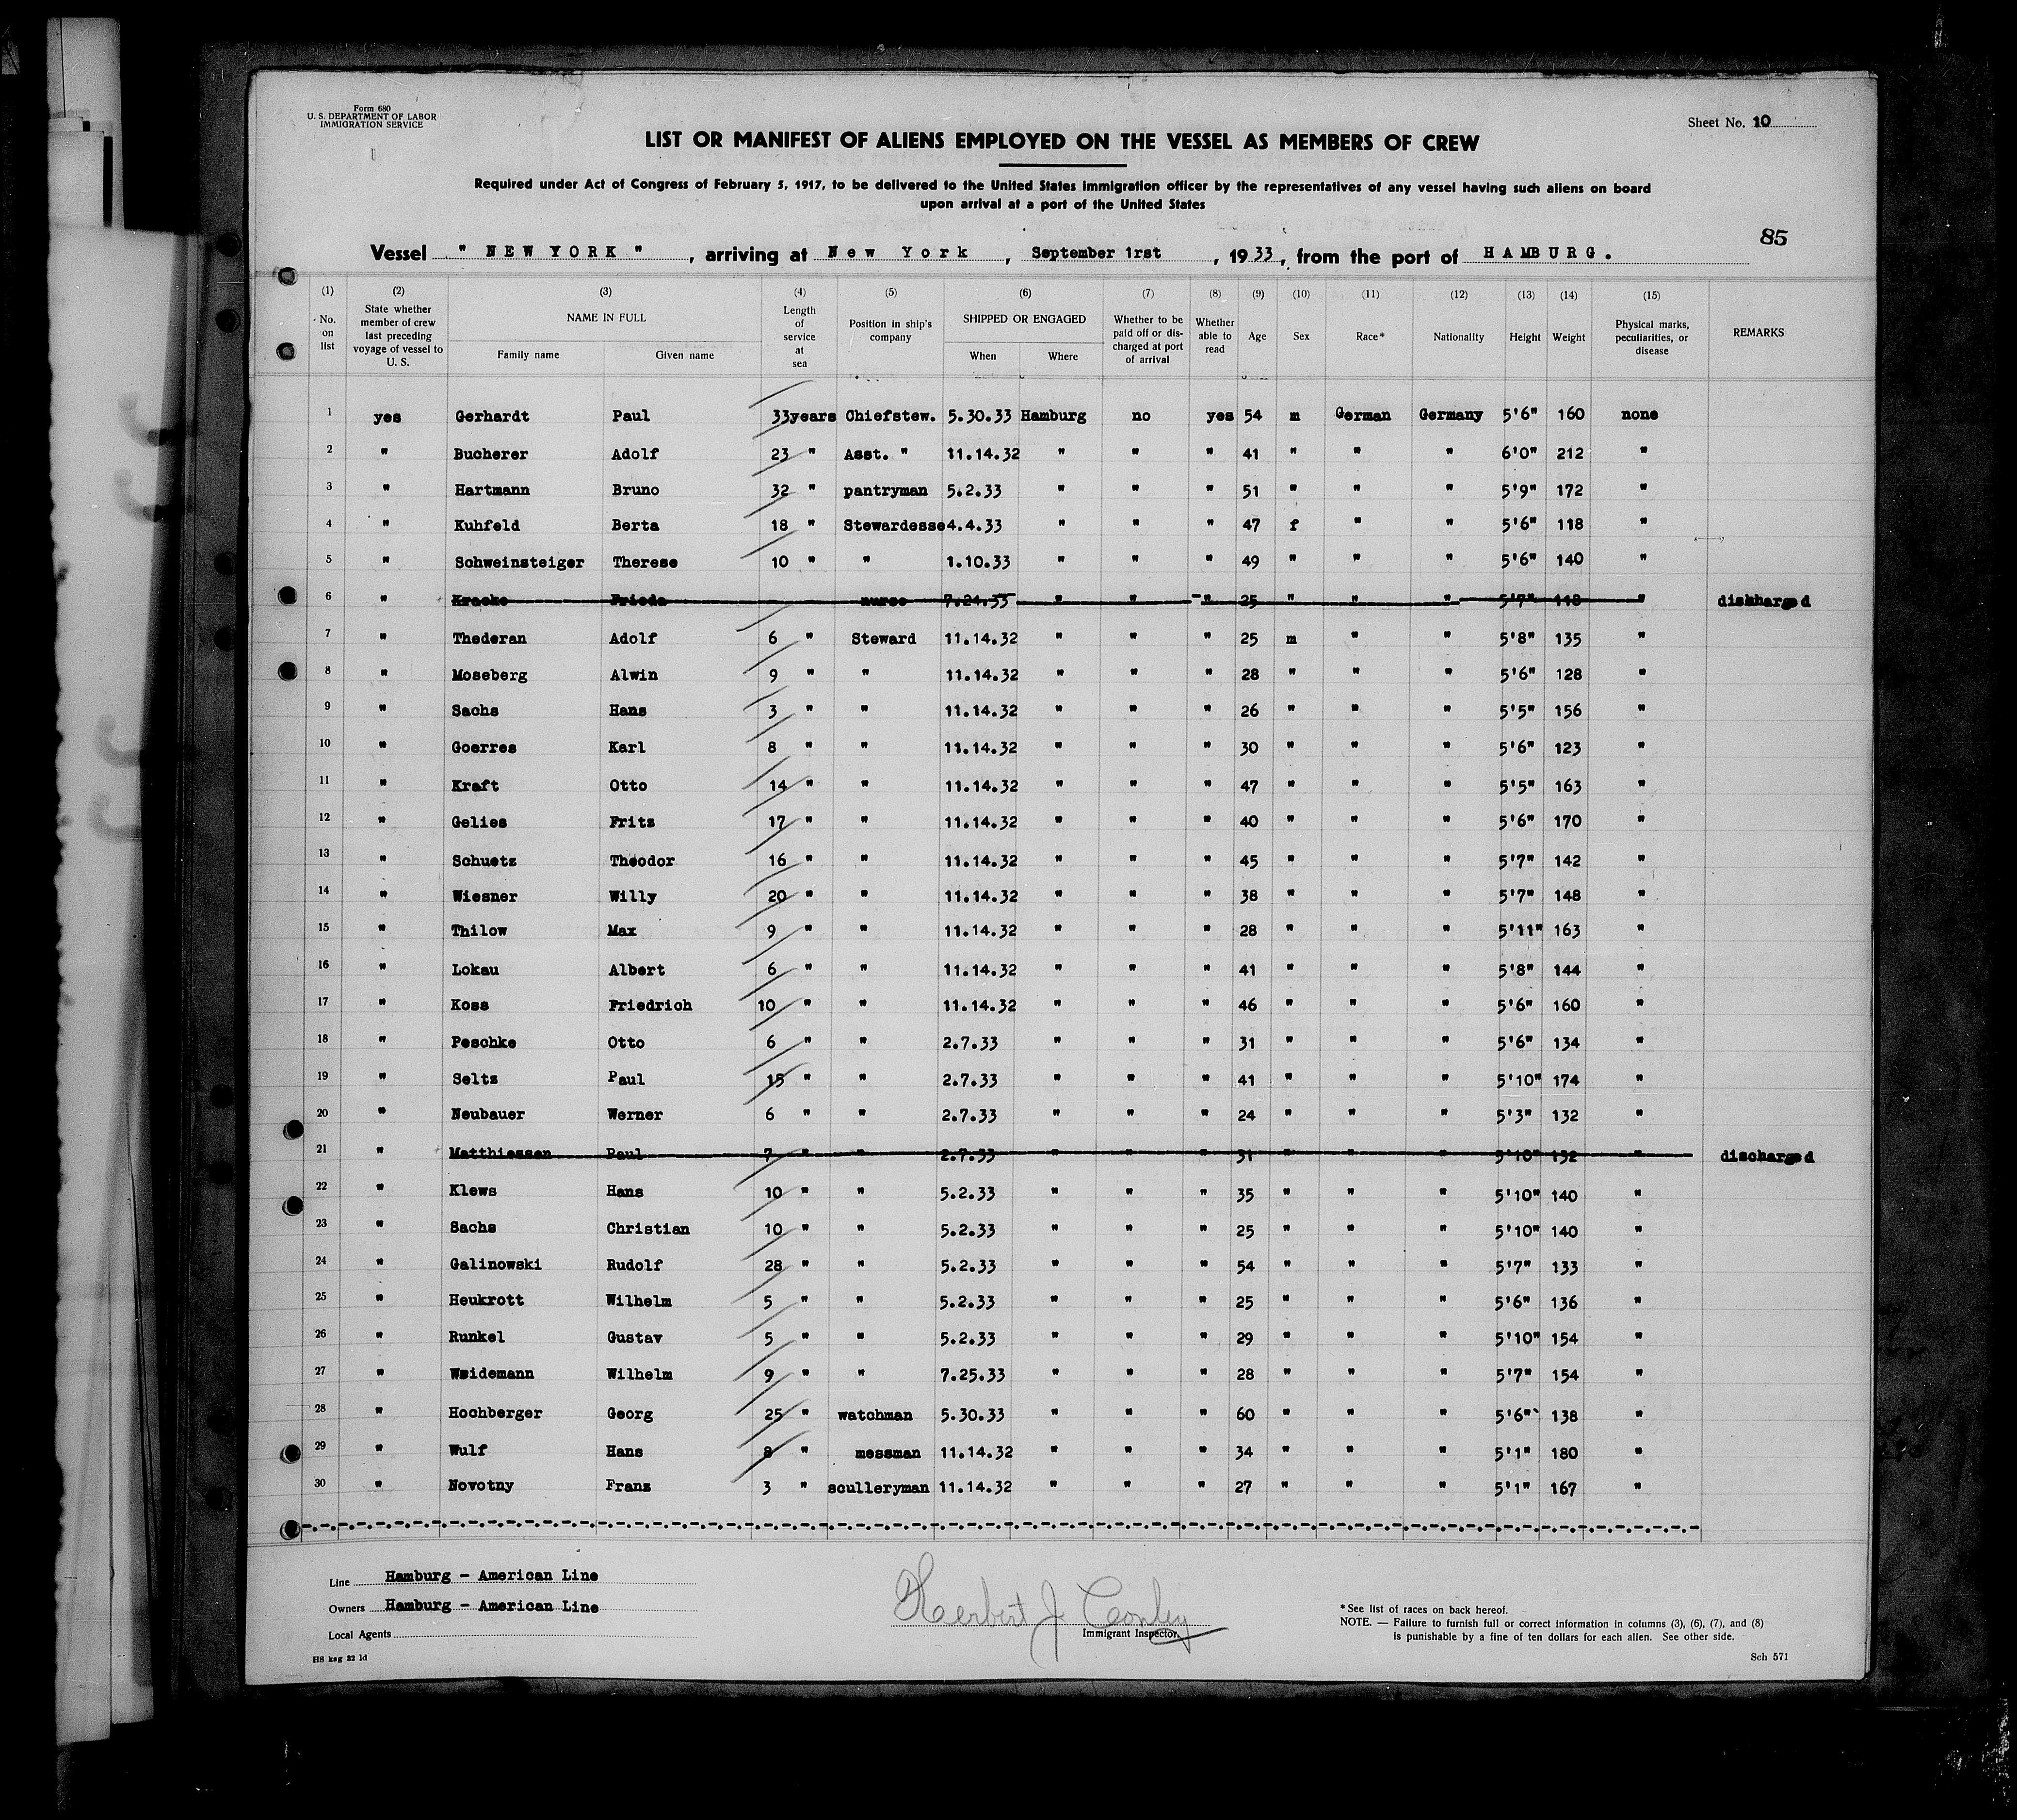 Form 680
U. S. DEPARTMENT OF LABOR
IMMIGRATION SERVICE
Sheet No. 10
LIST OR MANIFEST OF ALIENS EMPLOYED ON THE VESSEL AS MEMBERS OF CREW
Required under Act of Congress of February 5, 1917, to be delivered to the United States immigration officer by the representatives of any vessel having such aliens on board
upon arrival at a port of the United States
85
Vessel " NEW YORK " , arriving at New York , September 1rst , 1933, from the port of HAMBURG.
(1) (2) (3) (4) (5) (6) (7) (8) (9) (10) (11) (12) (13) (14) (15)
No. on list State whether member of crew last preceding voyage of vessel to U. S. NAME IN FULL Family name Given name Length of service at sea Position in ship's company SHIPPED OR ENGAGED When Where Whether to be paid off or discharged at port of arrival Whether able to read Age Sex Race* Nationality Height Weight Physical marks, peculiarities, or disease REMARKS
1 yes Gerhardt Paul 33years Chiefstew. 5.30.33 Hamburg no yes 54 m German Germany 5'6" 160 none
2 " Bucherer Adolf 23 " Asst. " 11.14.32 " " " 41 " " " 6'0" 212 "
3 " Hartmann Bruno 32 " pantryman 5.2.33 " " " 51 " " " 5'9" 172 "
4 " Kuhfeld Berta 18 " Stewardesse 4.4.33 " " " 47 f " " 5'6" 118 "
5 " Schweinsteiger Therese 10 " " 1.10.33 " " " 49 " " " 5'6" 140 "
6 " Kracke Frieda nurse 7.24.33 " " " 25 " " " 5'7" 118 " diskharged
7 " Thederan Adolf 6 " Steward 11.14.32 " " " 25 m " " 5'8" 135 "
8 " Moseberg Alwin 9 " " 11.14.32 " " " 28 " " " 5'6" 128 "
9 " Sachs Hans 3 " " 11.14.32 " " " 26 " " " 5'5" 156 "
10 " Goerres Karl 8 " " 11.14.32 " " " 30 " " " 5'6" 123 "
11 " Kraft Otto 14 " " 11.14.32 " " " 47 " " " 5'5" 163 "
12 " Gelies Fritz 17 " " 11.14.32 " " " 40 " " " 5'6" 170 "
13 " Schuetz Theodor 16 " " 11.14.32 " " " 45 " " " 5'7" 142 "
14 " Wiesner Willy 20 " " 11.14.32 " " " 38 " " " 5'7" 148 "
15 " Thilow Max 9 " " 11.14.32 " " " 28 " " " 5'11" 163 "
16 " Lokau Albert 6 " " 11.14.32 " " " 41 " " " 5'8" 144 "
17 " Koss Friedrich 10 " " 11.14.32 " " " 46 " " " 5'6" 160 "
18 " Peschke Otto 6 " " 2.7.33 " " " 31 " " " 5'6" 134 "
19 " Seltz Paul 15 " " 2.7.33 " " " 41 " " " 5'10" 174 "
20 " Neubauer Werner 6 " " 2.7.33 " " " 24 " " " 5'3" 132 "
21 " Matthiessen Paul 7 " " 2.7.33 " " " 31 " " " 5'10" 132 " discharged
22 " Klews Hans 10 " " 5.2.33 " " " 35 " " " 5'10" 140 "
23 " Sachs Christian 10 " " 5.2.33 " " " 25 " " " 5'10" 140 "
24 " Galinowski Rudolf 28 " " 5.2.33 " " " 54 " " " 5'7" 133 "
25 " Heukrott Wilhelm 5 " " 5.2.33 " " " 25 " " " 5'6" 136 "
26 " Runkel Gustav 5 " " 5.2.33 " " " 29 " " " 5'10" 154 "
27 " Weidemann Wilhelm 9 " " 7.25.33 " " " 28 " " " 5'7" 154 "
28 " Hochberger Georg 25 " watchman 5.30.33 " " " 60 " " " 5'6" 138 "
29 " Wulf Hans 8 " messman 11.14.32 " " " 34 " " " 5'1" 180 "
30 " Novotny Franz 3 " sculleryman 11.14.32 " " " 27 " " " 5'1" 167 "
Line Hamburg - American Line
Owners Hamburg - American Line
Local Agents
H8 ksg 32 1d
Herbert J Conley
Immigrant Inspector.
* See list of races on back hereof.
NOTE. — Failure to furnish full or correct information in columns (3), (6), (7), and (8)
is punishable by a fine of ten dollars for each alien. See other side.
Sch 571